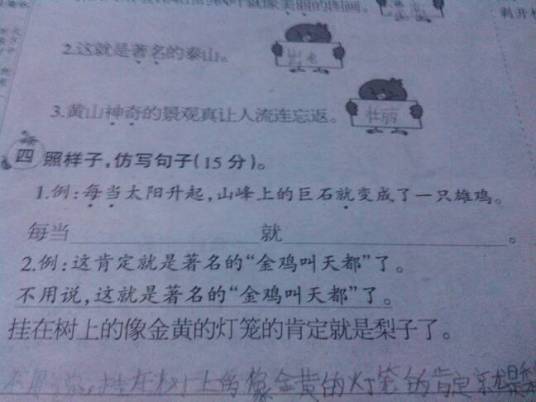 2.这就是著名的泰山。 出名
3.黄山神奇的景观真让人流连忘返。 壮丽
四 照样子,仿写句子(15分)。
1.例:每当太阳升起,山峰上的巨石就变成了一只雄鸡。
每当 就 。
2.例:这肯定就是著名的“金鸡叫天都”了。
不用说,这就是著名的“金鸡叫天都”了。
挂在树上的像金黄的灯笼的肯定就是梨子了。
不用说,挂在树上的像金黄的灯笼的肯定就是